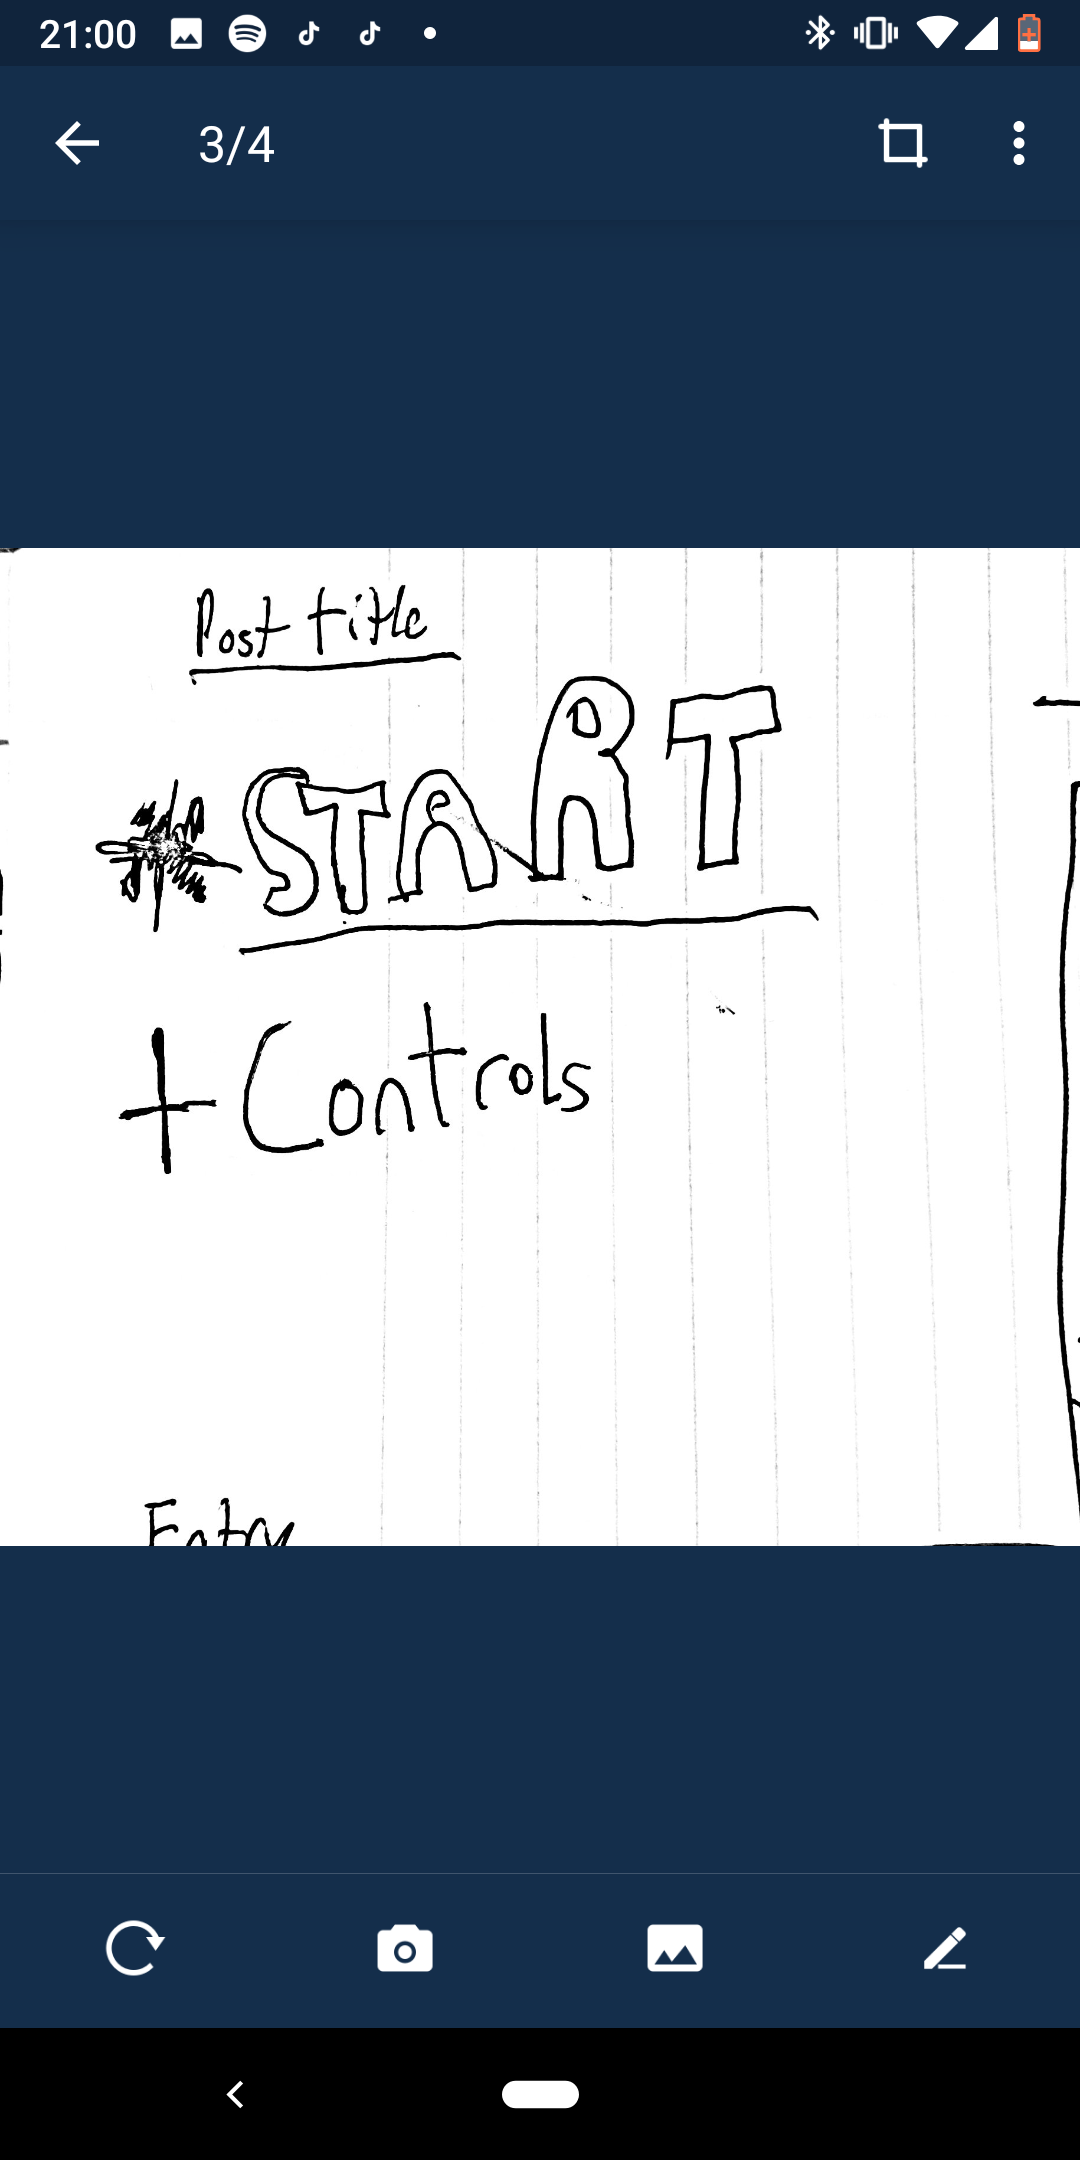 21:00
3/4
Post title
START
+ Controls
Entry